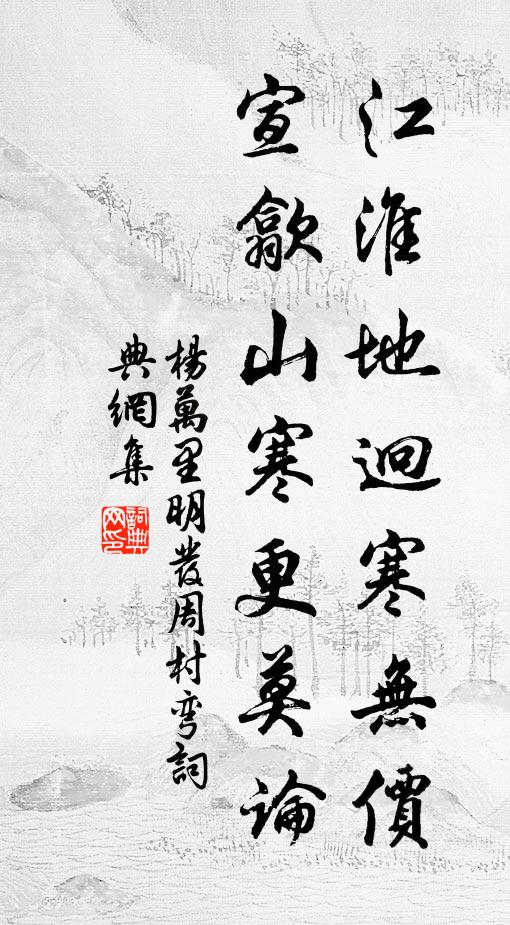 江淮地迥寒無價
宣歙山寒更莫論
楊萬里明發周村彎詞
典網集
詞典
网印